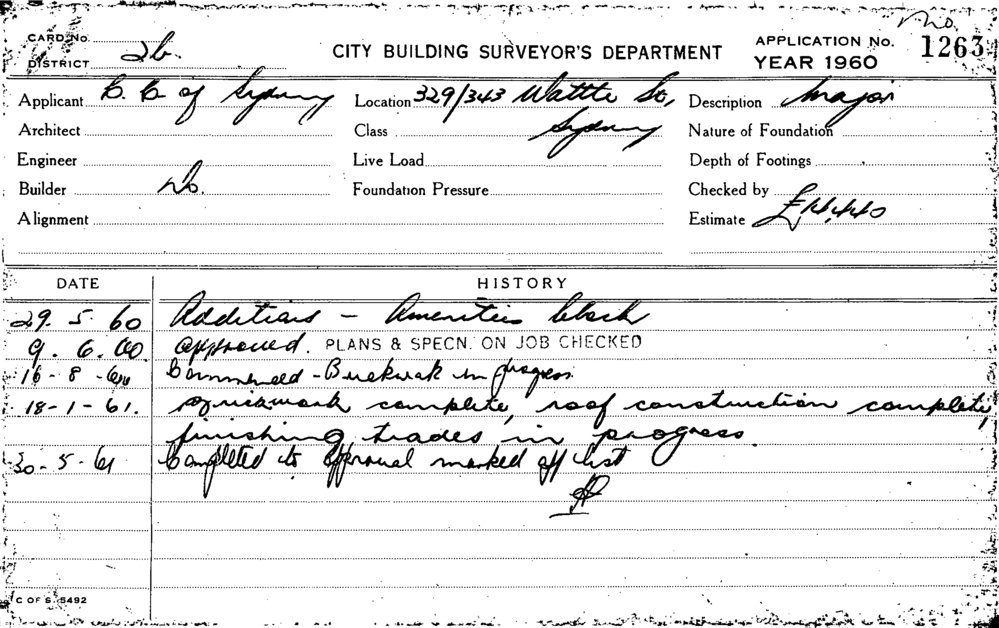 No.
CARD No.
DISTRICT 2b.
CITY BUILDING SURVEYOR'S DEPARTMENT
APPLICATION No. 1263
YEAR 1960
Applicant C. C. of Sydney Location 329/343 Wattle St, Description Major
Architect Class Sydney Nature of Foundation
Engineer Live Load Depth of Footings
Builder Do. Foundation Pressure Checked by
Alignment Estimate £14,440
DATE HISTORY
29. 5 60 Additions - Amenities block
9. 6. 60. approved. PLANS & SPECN. ON JOB CHECKED
16 - 8 - 60 Commenced - Brickwork in progress
18 - 1 - 61. Brickwork complete, roof construction complete,
finishing trades in progress.
30 - 5 - 61 Completed to approval marked off list
C OF S. 5492